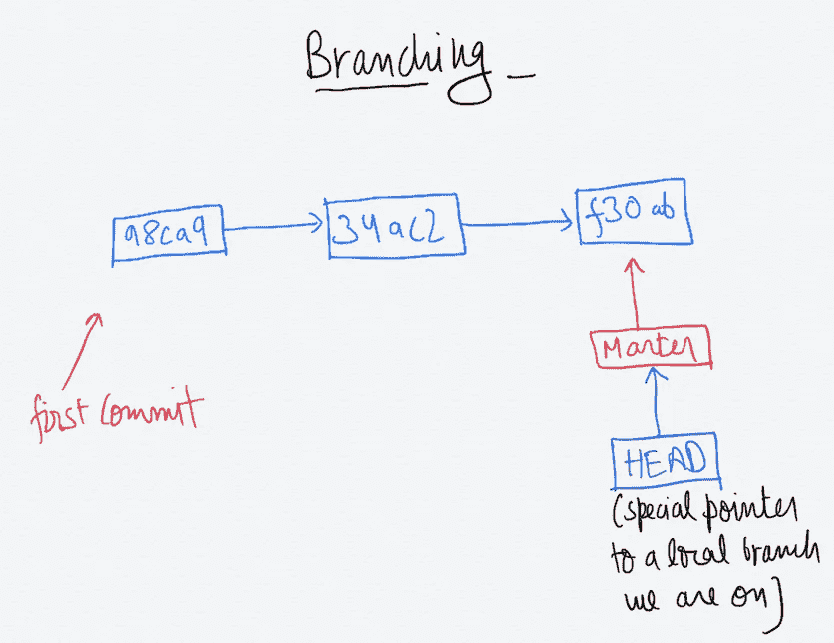 Branching_
98ca9
34ac2
f30ab
Master
first Commit
HEAD
(special pointer
to a local branch
we are on)